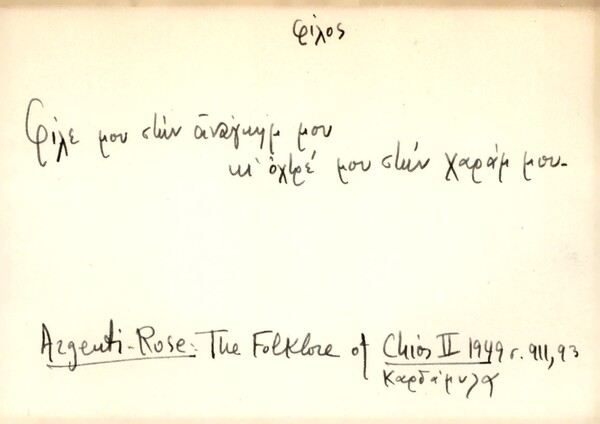 φίλος
Φίλε μου στὴν ἀνάγκημ μου
κι' ὀχτρέ μου στὴν χαράμ μου.
Argenti-Rose: The Folklore of Chios II 1949 σ. 911, 93
Καρδάμυλα